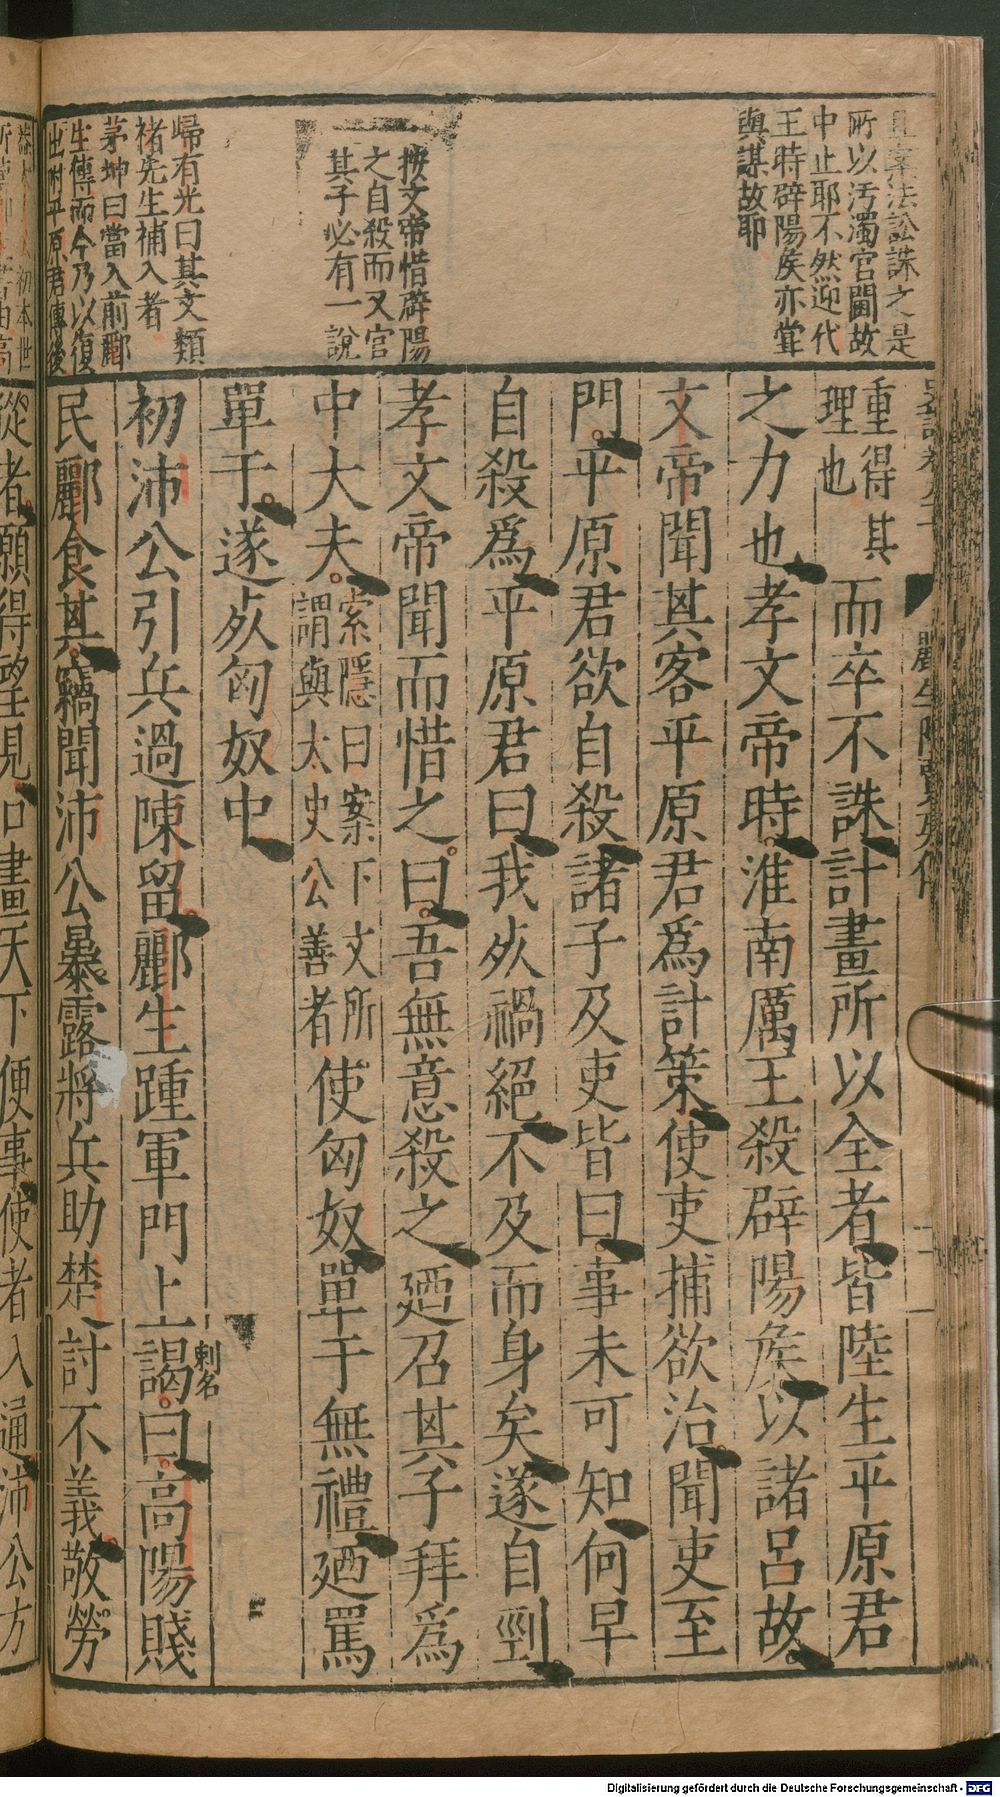 且案法訟誅之是
所以汚濁宮闈故
中止耶不然迎代
王時辟陽侯亦甞
與謀故耶
按文帝惜辟陽
之自殺而又官
其子必有一說
歸有光曰其文類
褚先生補入者
茅坤曰當入前酈
生傳而今乃以復
出附平原君傳後
重得其
理也
而卒不誅計畫所以全者皆陸生平原君
之力也孝文帝時淮南厲王殺辟陽侯以諸呂故
文帝聞其客平原君爲計策使吏捕欲治聞吏至
門平原君欲自殺諸子及吏皆曰事未可知何早
自殺爲平原君曰我死禍絕不及而身矣遂自剄
孝文帝聞而惜之曰吾無意殺之廼召其子拜爲
中大夫
索隱曰案下文所
謂與太史公善者
使匈奴單于無禮廼罵
單于遂死匈奴中
初沛公引兵過陳留酈生踵軍門上謁曰高陽賤
刺名
民酈食其竊聞沛公暴露將兵助楚討不義敬勞
從者願得望見口畫天下便事使者入通沛公方
Digitalisierung gefördert durch die Deutsche Forschungsgemeinschaft - DFG